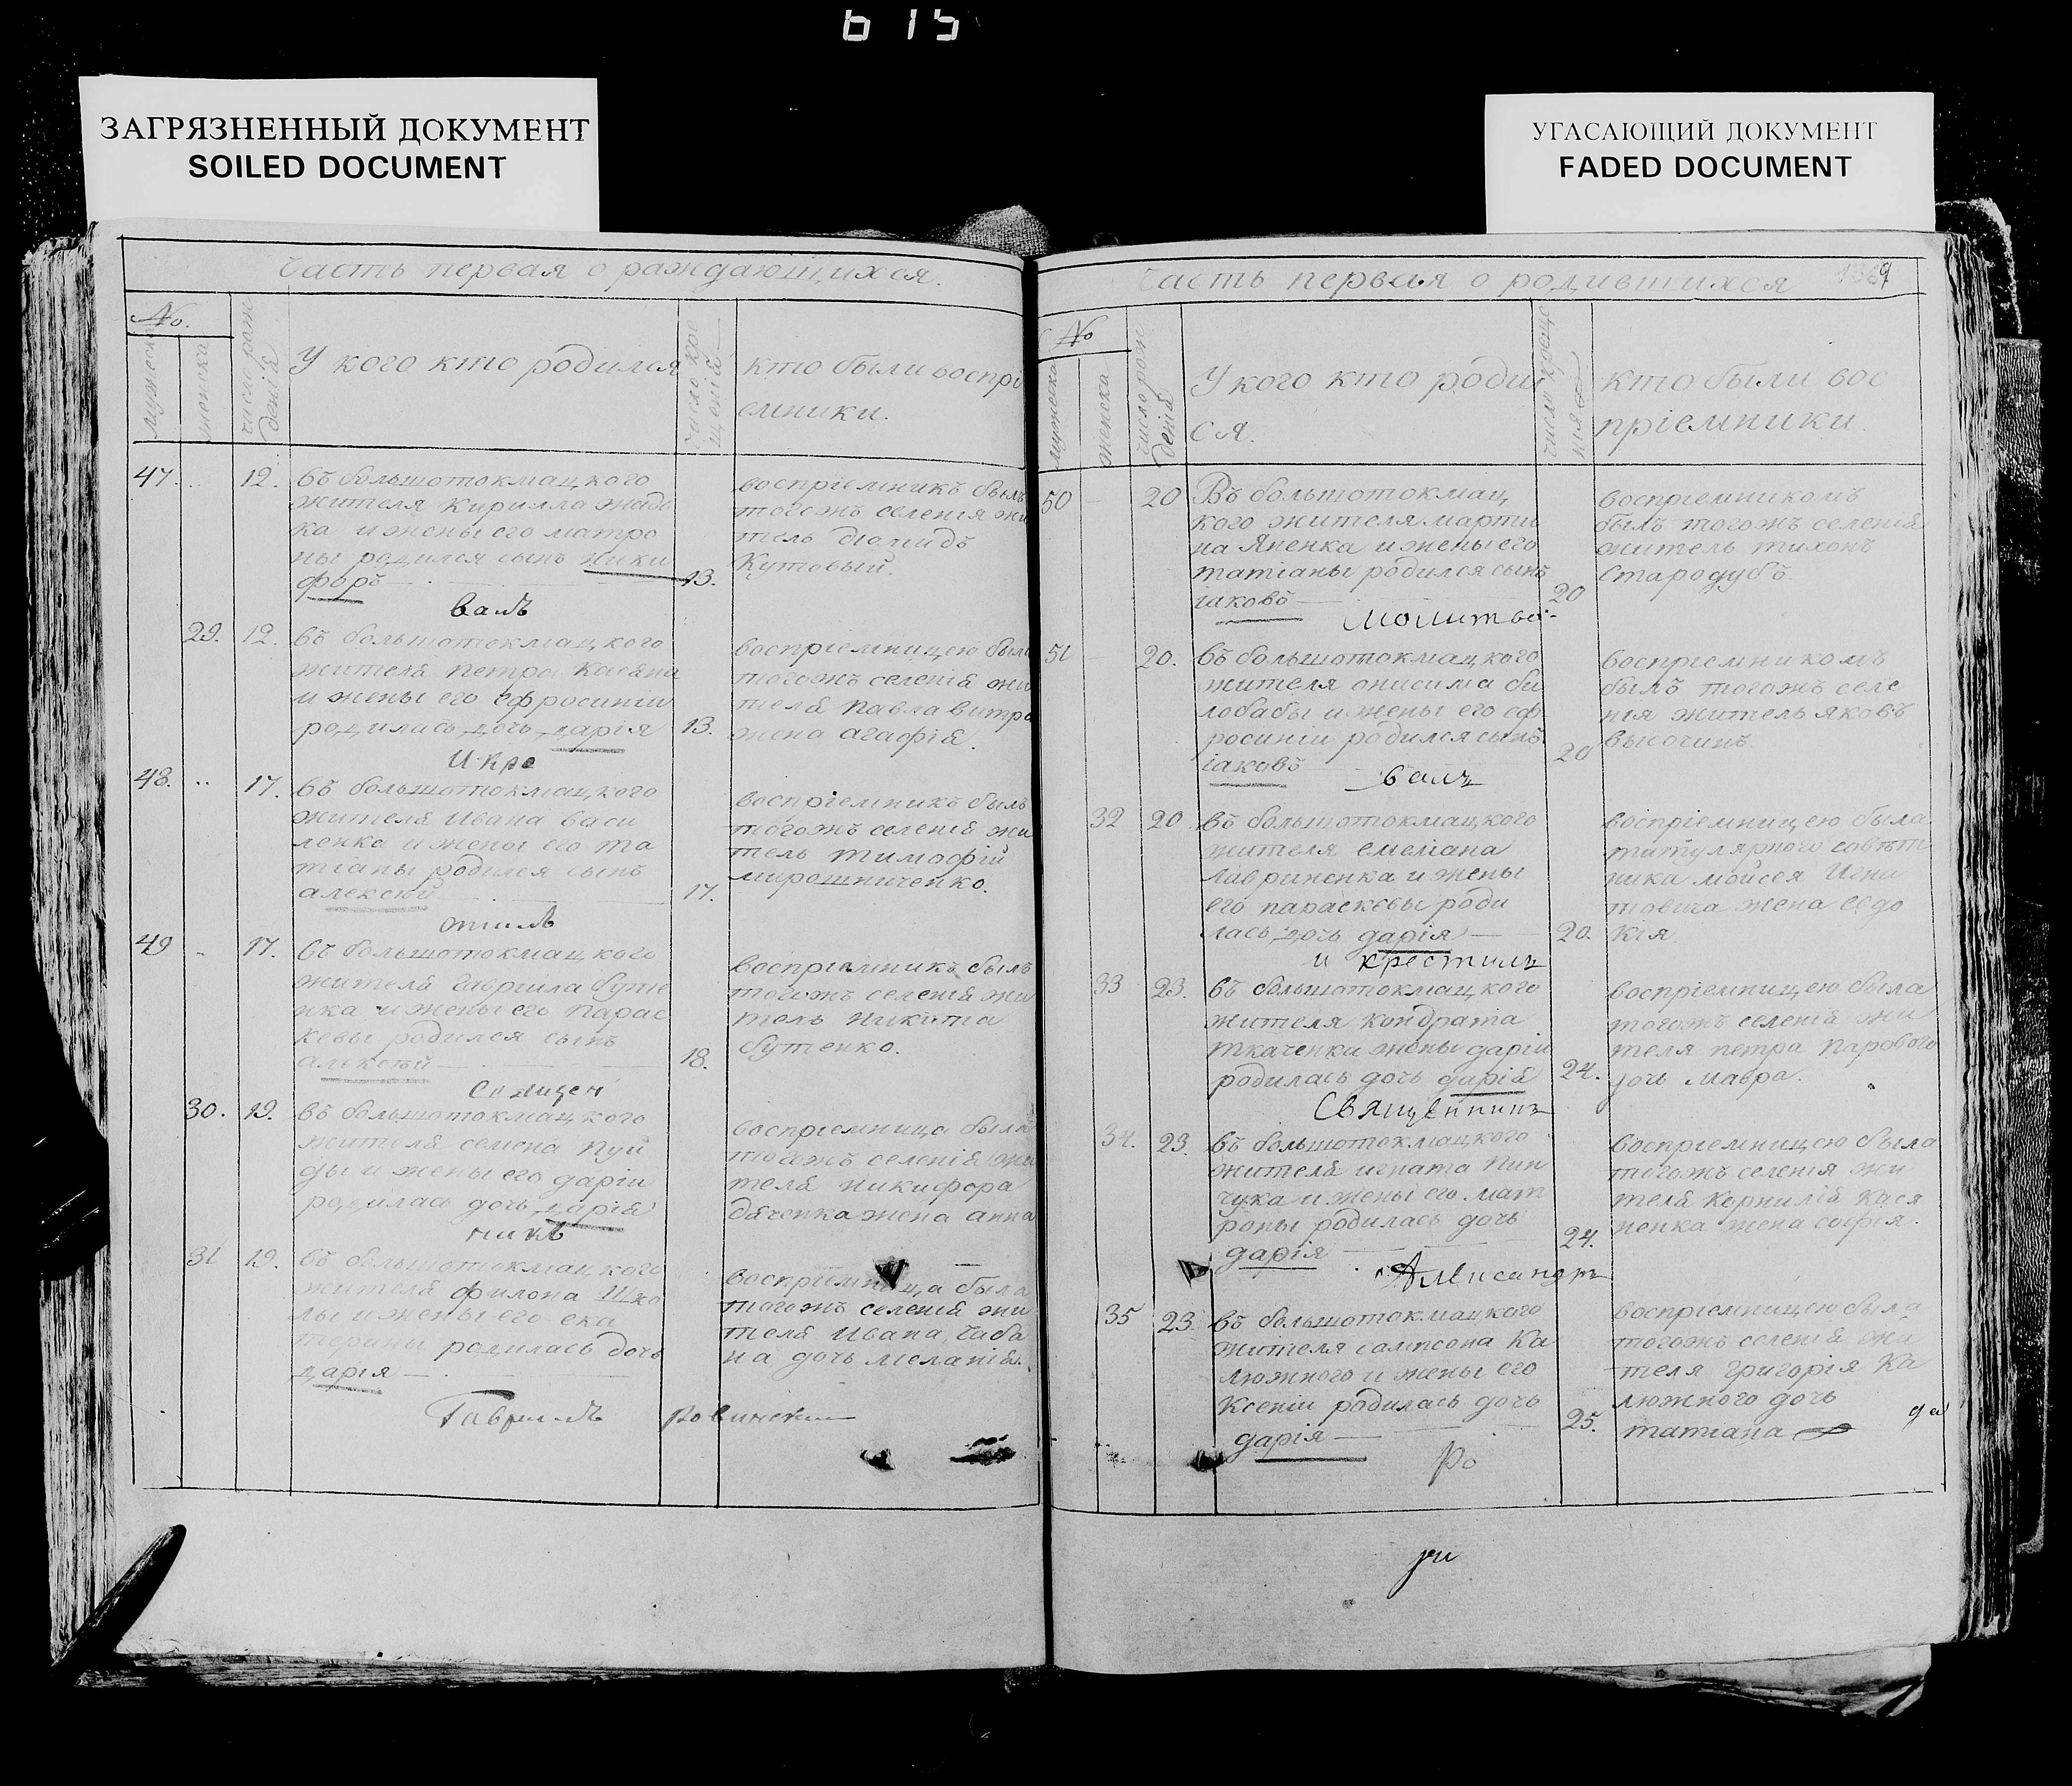 615
ЗАГРЯЗНЕННЫЙ ДОКУМЕНТ
SOILED DOCUMENT
УГАСАЮЩИЙ ДОКУМЕНТ
FADED DOCUMENT
Часть первая о раждающихся.
No.
мужеск
женска
число рож
денія
У кого кто родился
число кре
щенія
кто были воспрі
емники.
47. 12. въ большотокмацкого
жителя Кирилла
ка и жены его матро
ны родился сынъ ники
форъ 13.
воспріемникъ былъ
тогожъ селенія жи
тель діомидъ
Кутовый.
валъ
29. 12. въ большотокмацкого
жителя петра Касяна
и жены его ефросиніи
родилась дочь дарія 13.
воспріемницею была
тогожъ селенія жи
теля павла
жена агафія.
И кре
48. 17. въ большотокмацкого
жителя ивана васи
ленка и жены его та
тіаны родился сынъ
алексѣй 17.
воспріемникъ былъ
тогожъ селенія жи
тель тимофій
мирошниченко.
стилъ
49 17. въ большотокмацкого
жителя гавріила буте
нка и жены его парас
кевы родился сынъ
алексѣй 18.
воспріемникъ былъ
тогожъ селенія жи
тель никита
бутенко.
Священ
30. 19. въ большотокмацкого
жителя семена пуй
ды и жены его даріи
родилась дочь дарія
воспріемница была
тогожъ селенія жи
теля никифора
дяченка жена анна
никъ
31 19. въ большотокмацкого
жителя филона Шка
лы и жены его ека
терины родилась дочь
дарія
воспріемница была
тогожъ селенія жи
теля ивана чаба
на дочь меланія.
Гавріилъ Ровинскій
Часть первая о родившихся
No
мужеска
женска
число рож
денія
У кого кто роди
ся.
число креще
нія
кто были вос
пріемники.
50 20 Въ большотокмац
кого жителя марти
на Яненка и жены его
татіаны родился сынъ
іаковъ 20
воспріемникомъ
былъ тогожъ селенія
житель тихонъ
Стародубъ.
Молитво
51 20. въ большотокмацкого
жителя онисима би
лобабы и жены его еф
росиніи родился сынъ
іаковъ 20
воспріемникомъ
былъ тогожъ селе
нія житель яковъ
высочинъ
валъ
32 20 въ большотокмацкого
жителя емеліана
лавриненка и жены
его параскевы роди
лась дочь дарія 20.
воспріемницею была
титулярного совѣт
ника мойсея Игна
товича жена евдо
кія
и крестилъ
33 23. въ большотокмацкого
жителя кондрата
ткаченка жены даріи
родилась дочь дарія 24.
воспріемницею была
тогожъ селенія жи
теля петра парового
дочь мавра.
Священникъ
34. 23. въ большотокмацкого
жителя игната пин
чука и жены его мат
роны родилась дочь
дарія 24.
воспріемницею была
тогожъ селенія жи
теля корнилія кася
ненка жена софія.
Александръ
35 23 въ большотокмацкого
жителя сампсона Ка
люжного и жены его
Ксеніи родилась дочь
дарія 25.
воспріемницею была
тогожъ селенія жи
теля григорія Ка
люжного дочь
татіана
Ро